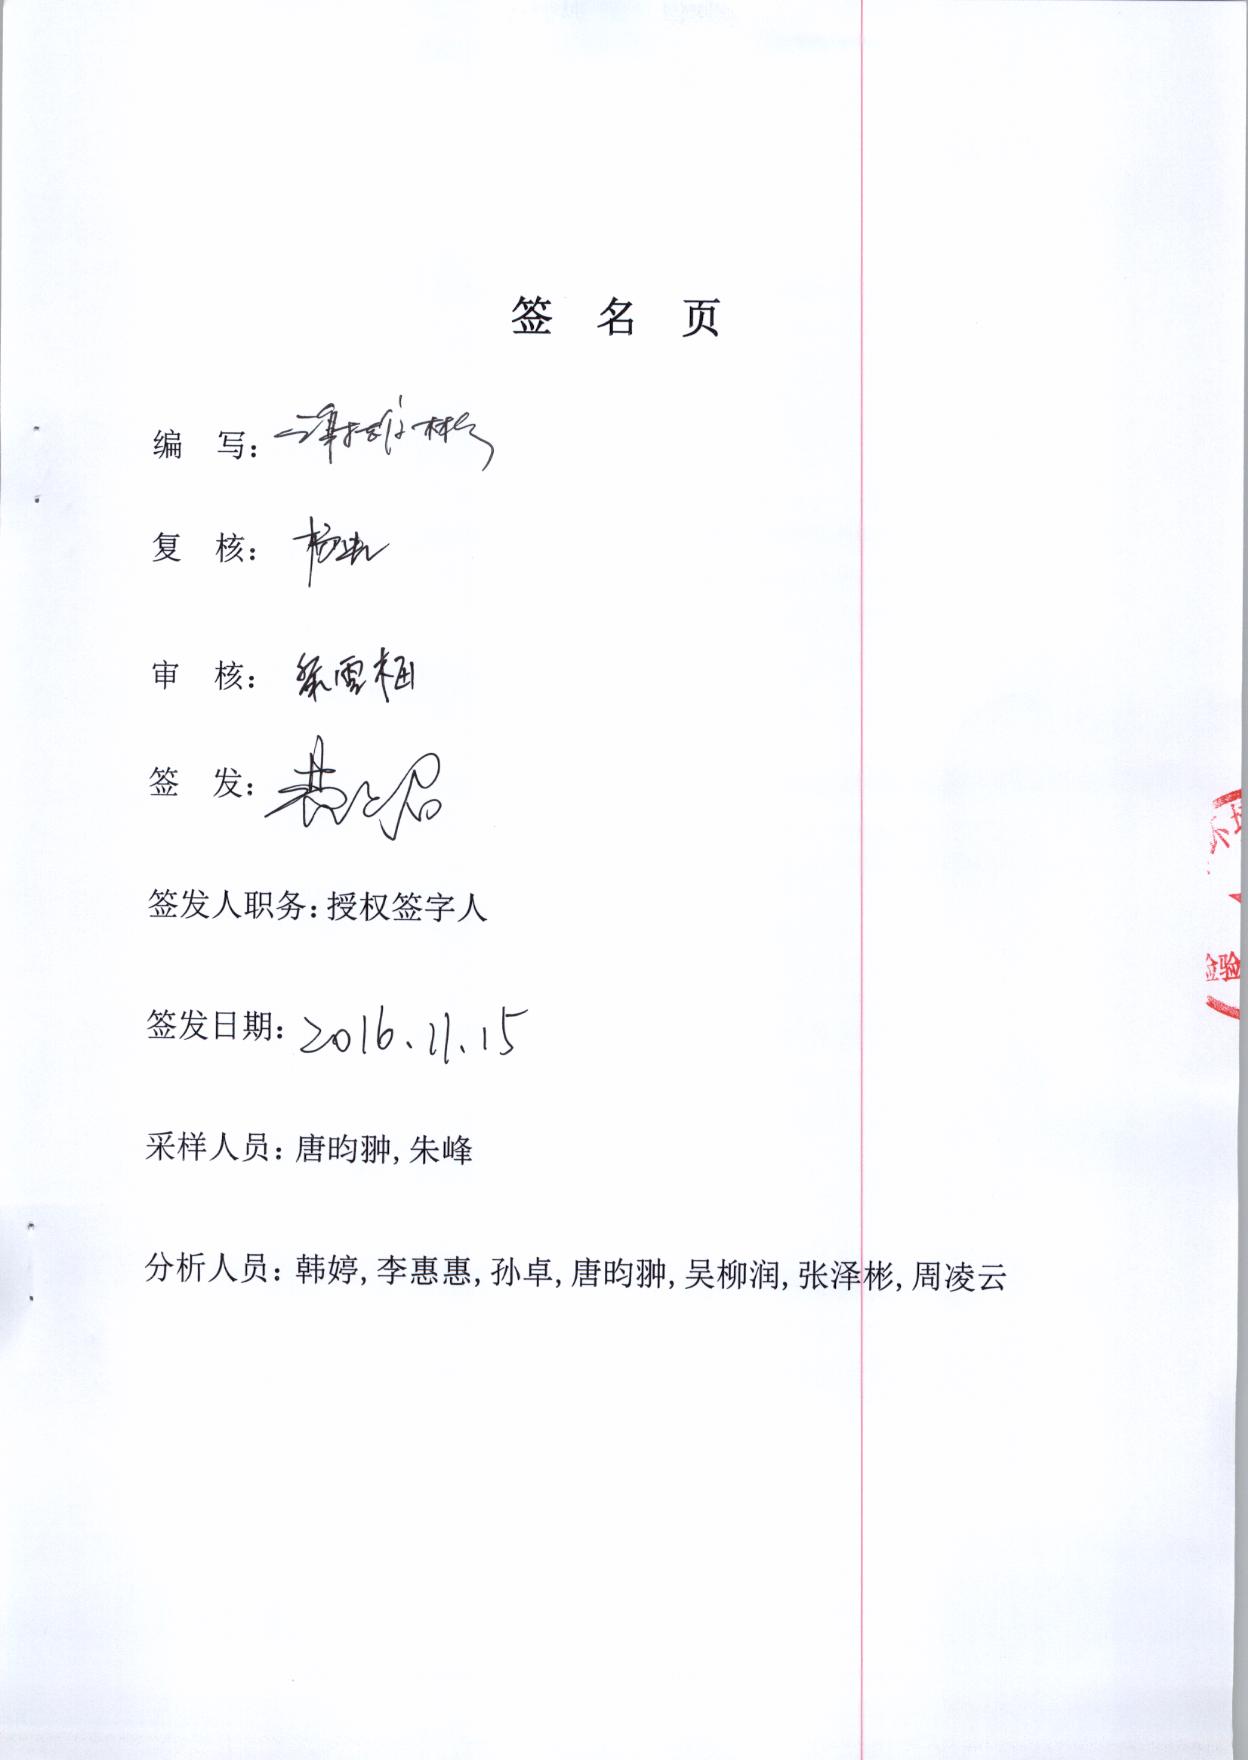 签 名 页
编 写：
复 核：
审 核：
签 发：
签发人职务：授权签字人
签发日期：2016.11.15
采样人员：唐昀翀，朱峰
分析人员：韩婷，李惠惠，孙卓，唐昀翀，吴柳润，张泽彬，周凌云
检验